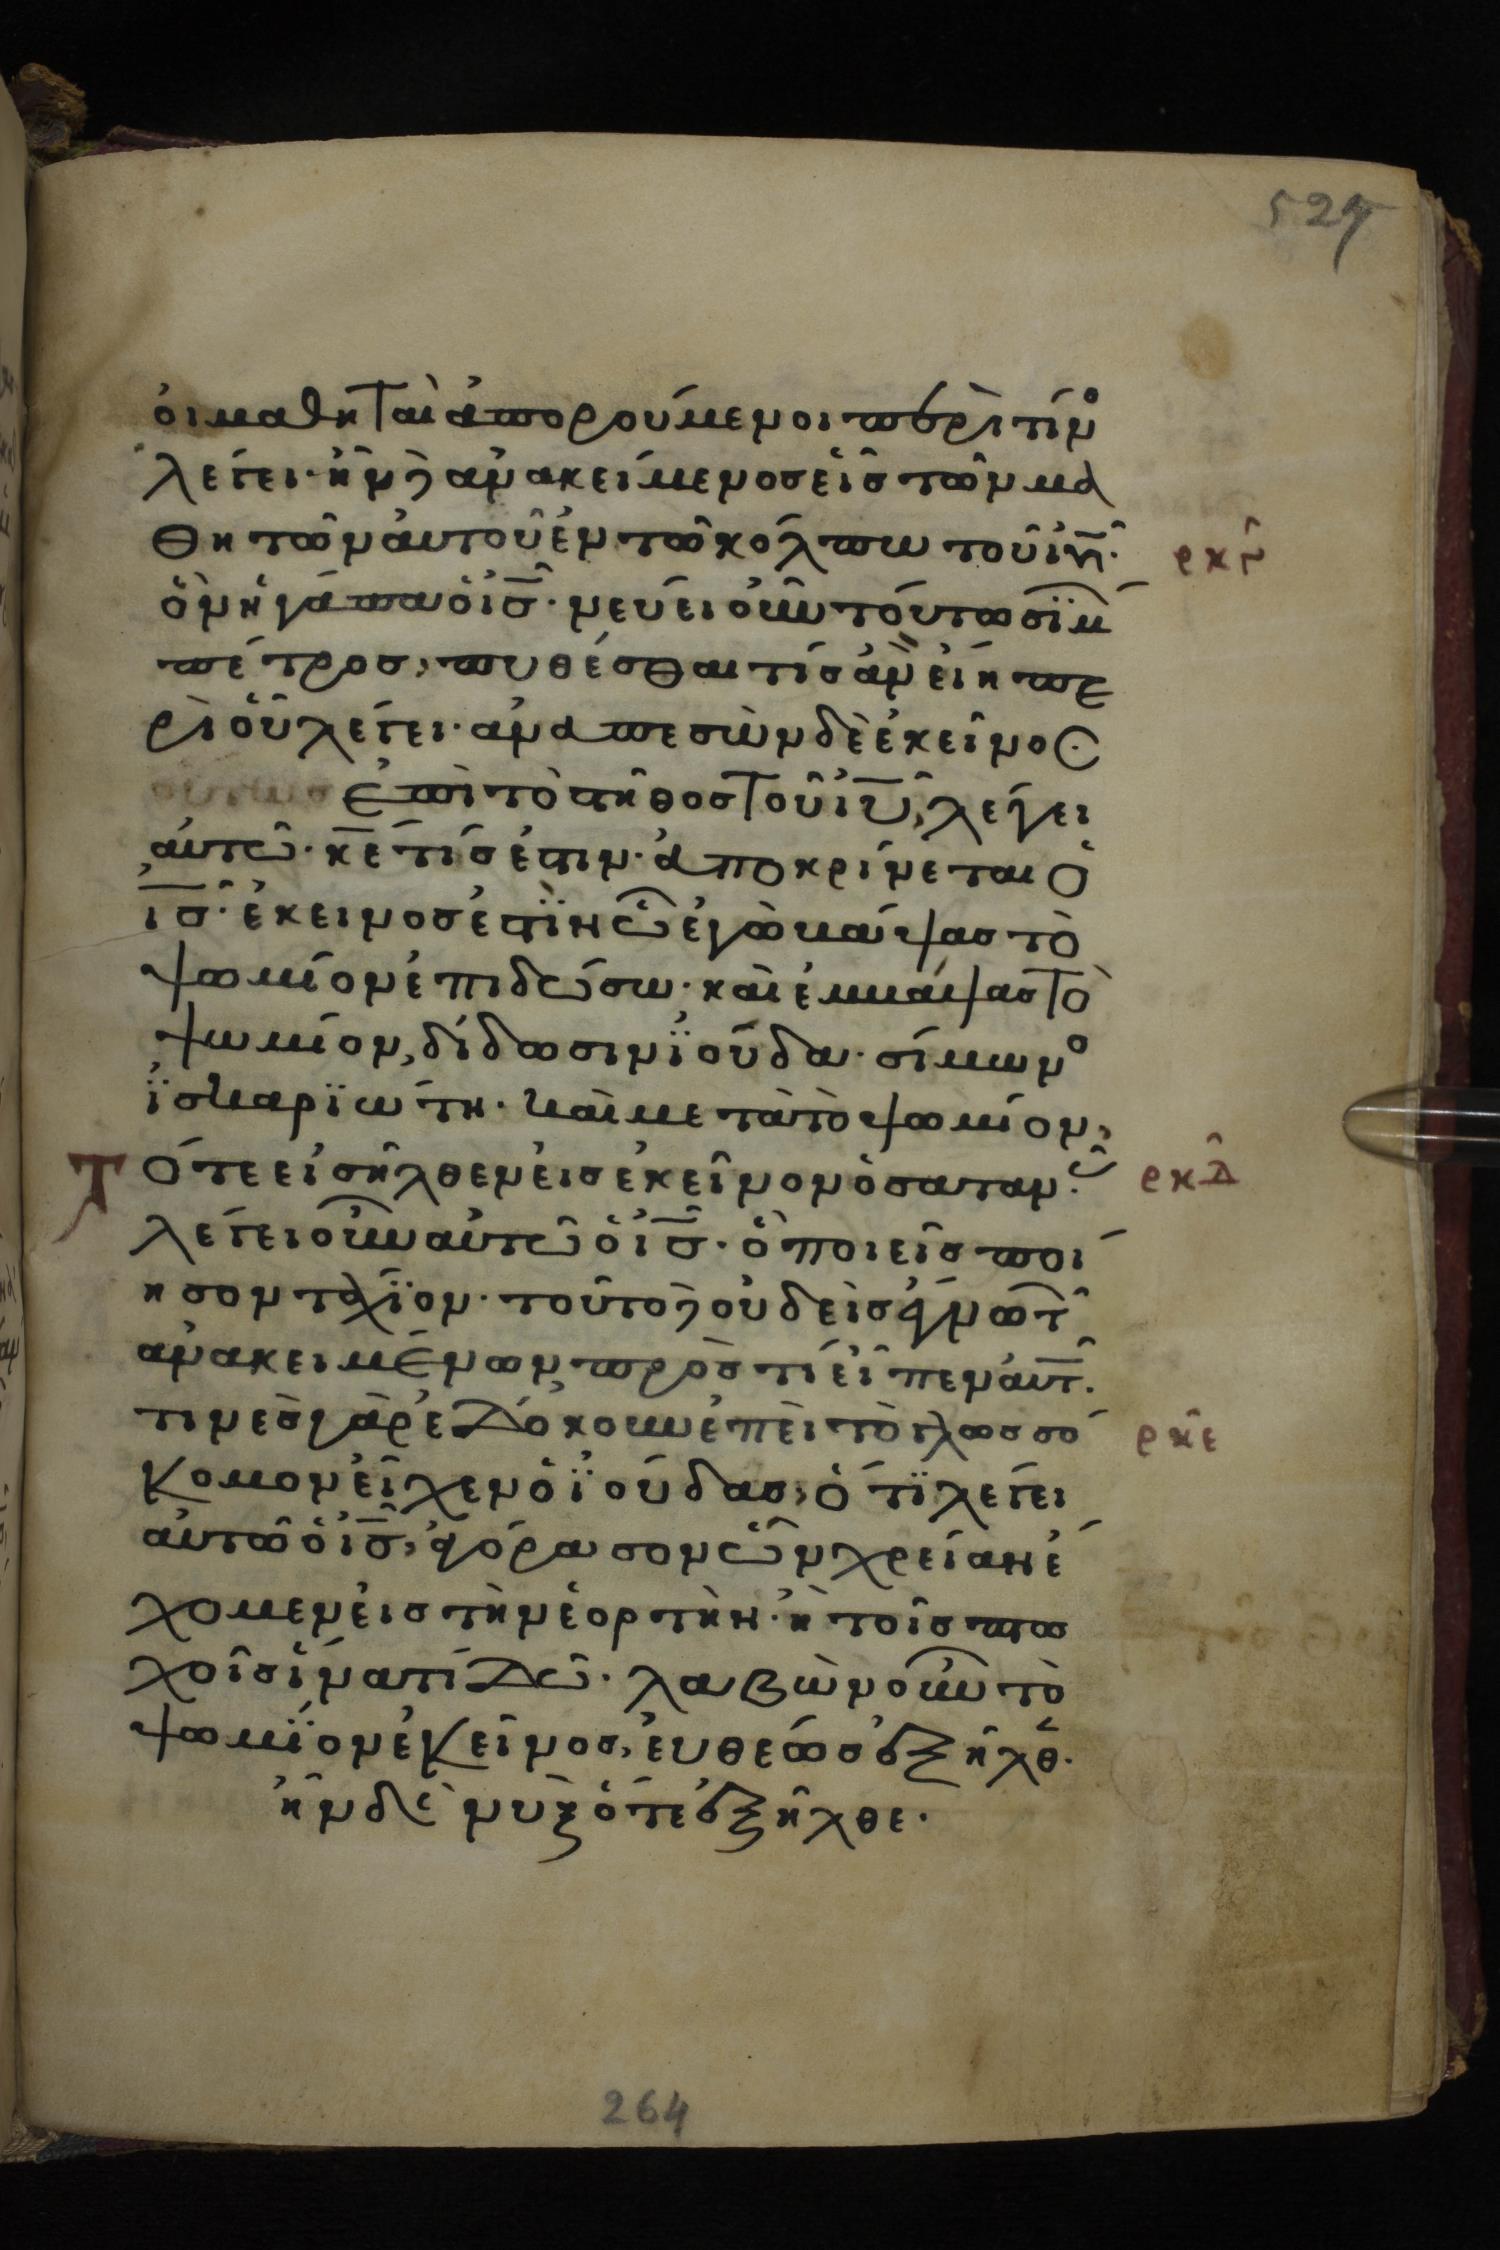 527
οἱ μαθηταὶ ἀπορούμενοι περὶ τίνο
λέγει· ἦν δὲ ἀνακείμενος εἷς τῶν μα
θητῶν αὐτοῦ ἐν τῶ κόλπω τοῦ ἰῦ·
ὃν ἠγάπα ὁ ἰς̅· νεύει οὖν τούτω σίμ
πέτρος, πυθέσθαι τίς ἂν εἴη πε
ρὶ οὗ λέγει· ἀναπεσὼν δὲ ἐκεῖνος
ἐπὶ τὸ στῆθος τοῦ ἰῦ, λέγει
αὐτῶ· κε̅ τίς ἐστιν· ἀποκρίνεται ὁ
ἰς̅· ἐκεινος ἐστϊν ὧ ἐγὼ βάψας τὸ
ψωμίον ἐπιδώσω· καὶ ἐμβάψας τὸ
ψωμίον, δίδωσιν ϊούδα· σίμωνο
ϊσκαρϊώτη· καὶ μετὰ τὸ ψωμίον,
Τότε εἰσῆλθεν εἰς ἐκεῖνον ὁ σαταν·
λέγει οὖν αὐτῶ ὁ ἰς̅· ὃ ποιεῖς ποί
ησον τάχϊον· τοῦτο δὲ οὐδεὶς ἔγνω τ
ἀνακειμένων, πρὸς τί εἶπεν αὐτ·
τινὲς γὰρ ἐδόκουν ἐπεὶ τὸ γλωσσό
κομον εἶχεν ὁ ϊούδας, ὅτϊ λέγει
αὐτῶ ὁ ἰς̅, ἀγόρασον ὧν χρείαν ἔ
χομεν εἰς τὴν ἑορτὴν· ἢ τοῖς πτω
χοῖς ἵνα τί δῶ· λαβὼν οὖν τὸ
ψωμϊον ἐκεῖνος, εὐθέως ἐξῆλθ·
ἦν δὲ νὺξ ὅτε ἐξῆλθε·
ρκγ
ρκδ
ρκε
264